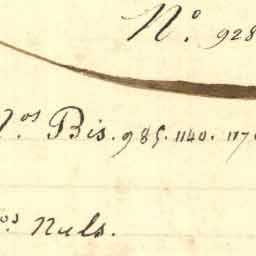 Nº. 928
Nos Bis. 985. 1140. 117
os Nuls.